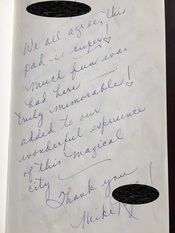 We all agree, this
pad is super!
Much fun was
had here —
Truly memorable!
added to our
wonderful experience
of this magical
city —
Thank you!
Mike